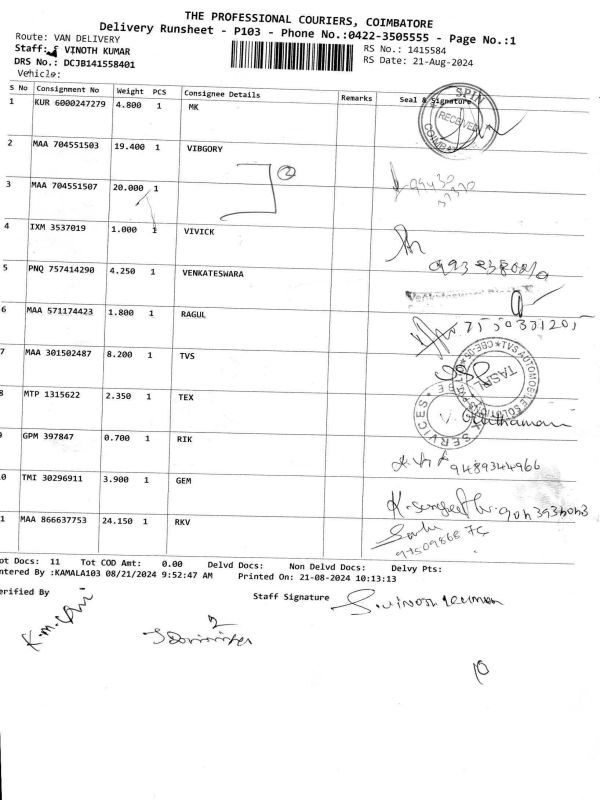 THE PROFESSIONAL COURIERS, COIMBATORE
Delivery Runsheet - P103 - Phone No.:0422-3505555 - Page No.:1
Route: VAN DELIVERY
RS No.: 1415584
Staff: S VINOTH KUMAR
RS Date: 21-Aug-2024
DRS No.: DCJB141558401
Vehicle:
S No Consignment No Weight PCS Consignee Details Remarks Seal & Signature
1 KUR 6000247279 4.800 1 MK
SPIN RECEIVED
2 MAA 704551503 19.400 1 VIBGORY
2
3 MAA 704551507 20.000 1
4 IXM 3537019 1.000 1 VIVICK
5 PNQ 757414290 4.250 1 VENKATESWARA
6 MAA 571174423 1.800 1 RAGUL
7 MAA 301502487 8.200 1 TVS
TVS AUTOMOBILE SOLUTIONS TASL
8 MTP 1315622 2.350 1 TEX
SERVICES
9 GPM 397847 0.700 1 RIK
9489344966
10 TMI 30296911 3.900 1 GEM
11 MAA 866637753 24.150 1 RKV
ot Docs: 11 Tot COD Amt: 0.00 Delvd Docs: Non Delvd Docs: Delvy Pts:
ntered By :KAMALA103 08/21/2024 9:52:47 AM Printed On: 21-08-2024 10:13:13
erified By
Staff Signature S.vinoth kumar
2
10